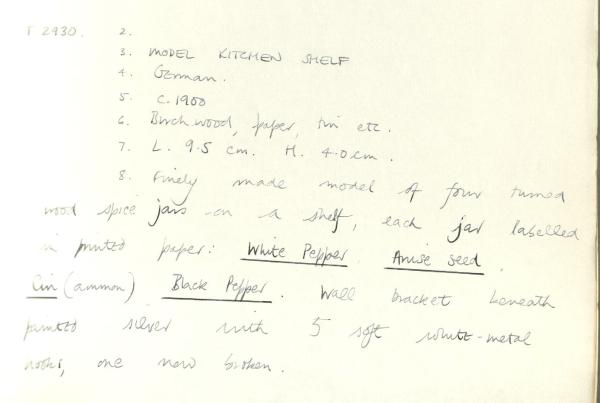 T 2930. 2.
3. MODEL KITCHEN SHELF
4. German.
5. c. 1900
6. Birchwood, paper, tin etc.
7. L. 9.5 cm. H. 4.0 cm.
8. Finely made model of four turned
wood spice jars on a shelf, each jar labelled
in printed paper: White Pepper. Anise seed.
Cin (ammon) Black Pepper. Wall bracket beneath
painted silver with 5 soft white-metal
hooks, one now broken.